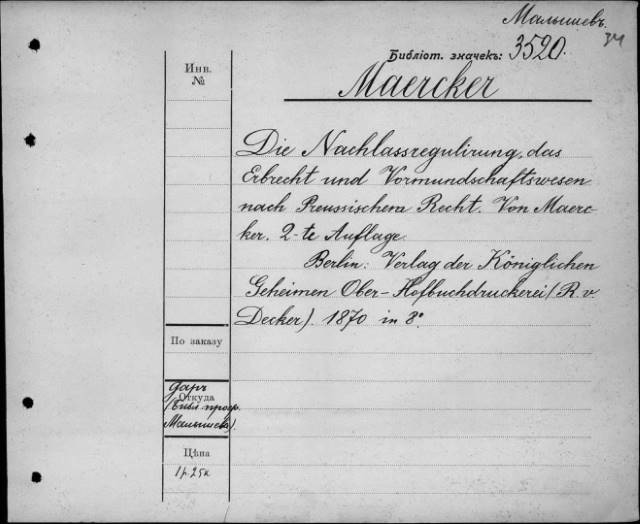 Малышевъ.
34
Библіот. значекъ: 3520.
Инв.
№
Maercker
Die Nachlassregulirung, das
Erbrecht und Vormundschaftswesen
nach Preussischem Recht. Von Maerc-
ker. 2-te Auflage
Berlin: Verlag der Königlichen
Geheimen Ober-Hofbuchdruckerei (R. v.
Decker). 1870 in 8º
По заказу
даръ
Откуда
(Библ. проф.
Малышева).
Цѣна
1 р. 25 к